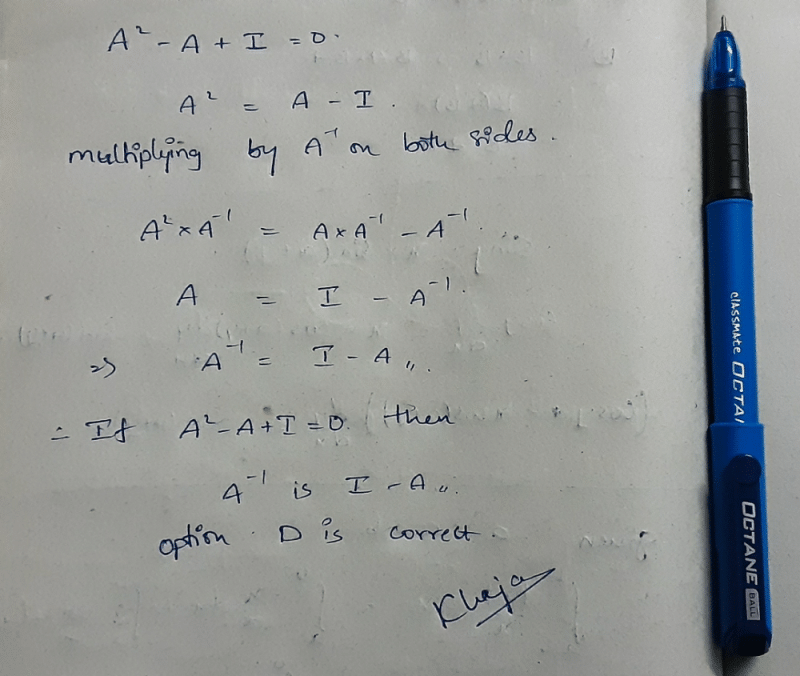 A² - A + I = 0.
A² = A - I.
multiplying by A⁻¹ on both sides.
A² × A⁻¹ = A × A⁻¹ - A⁻¹.
A = I - A⁻¹.
⇒ A⁻¹ = I - A,,.
∴ If A² - A + I = 0. then
A⁻¹ is I - A,,.
option. D is correct.
Khaja
classmate OCTA
OCTANE
BALL